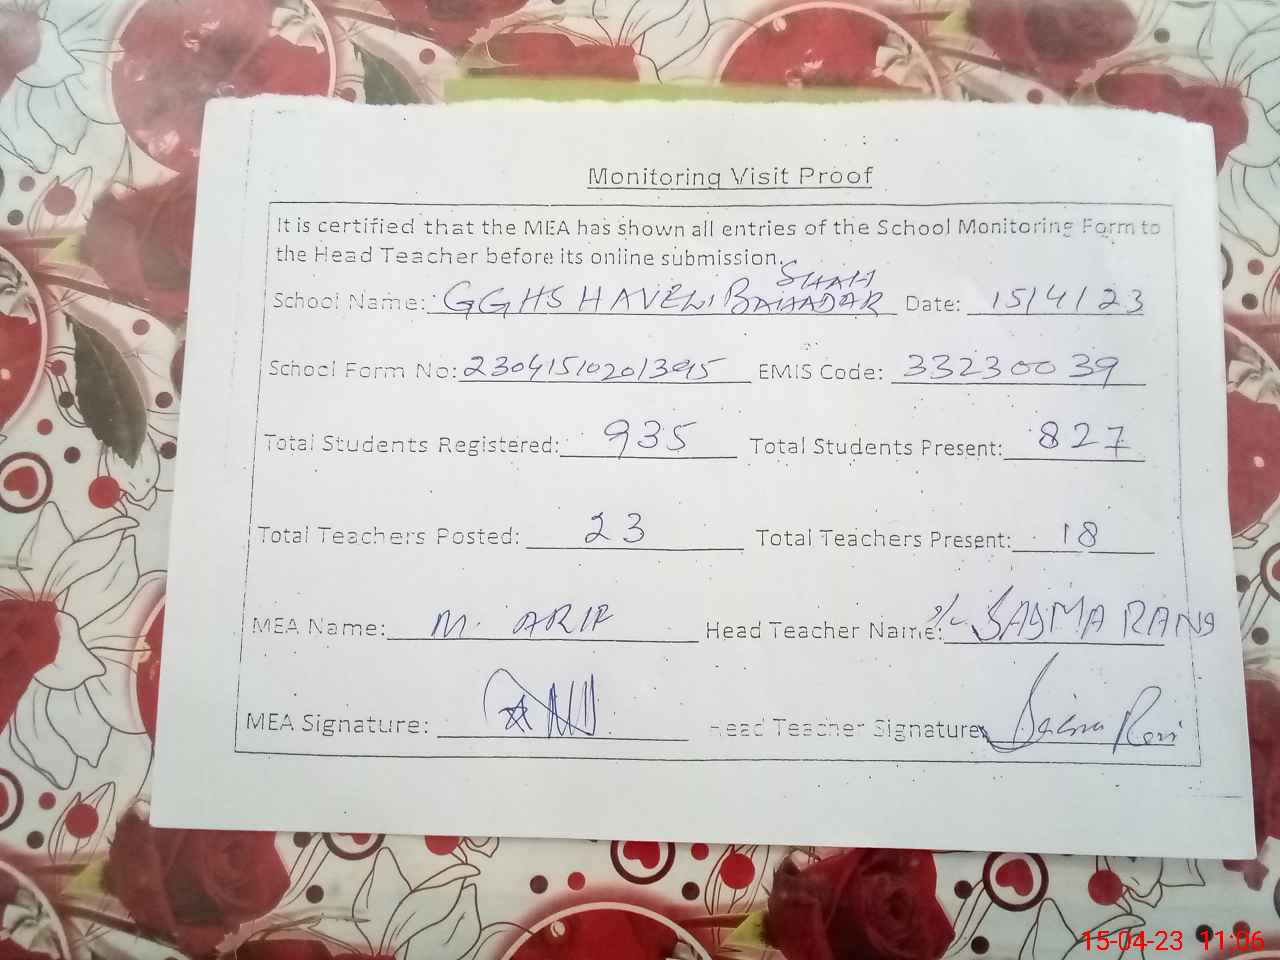 Monitoring Visit Proof
It is certified that the MEA has shown all entries of the School Monitoring Form to
the Head Teacher before its online submission.
School Name: GGHS HAVELI BAHADAR SHAH Date: 15/4/23
School Form No: EMIS Code: 33230039
Total Students Registered: 935 Total Students Present: 827
Total Teachers Posted: 23 Total Teachers Present: 18
MEA Name: M. ARIF Head Teacher Name:
MEA Signature: Head Teacher Signature
15-04-23 11:06